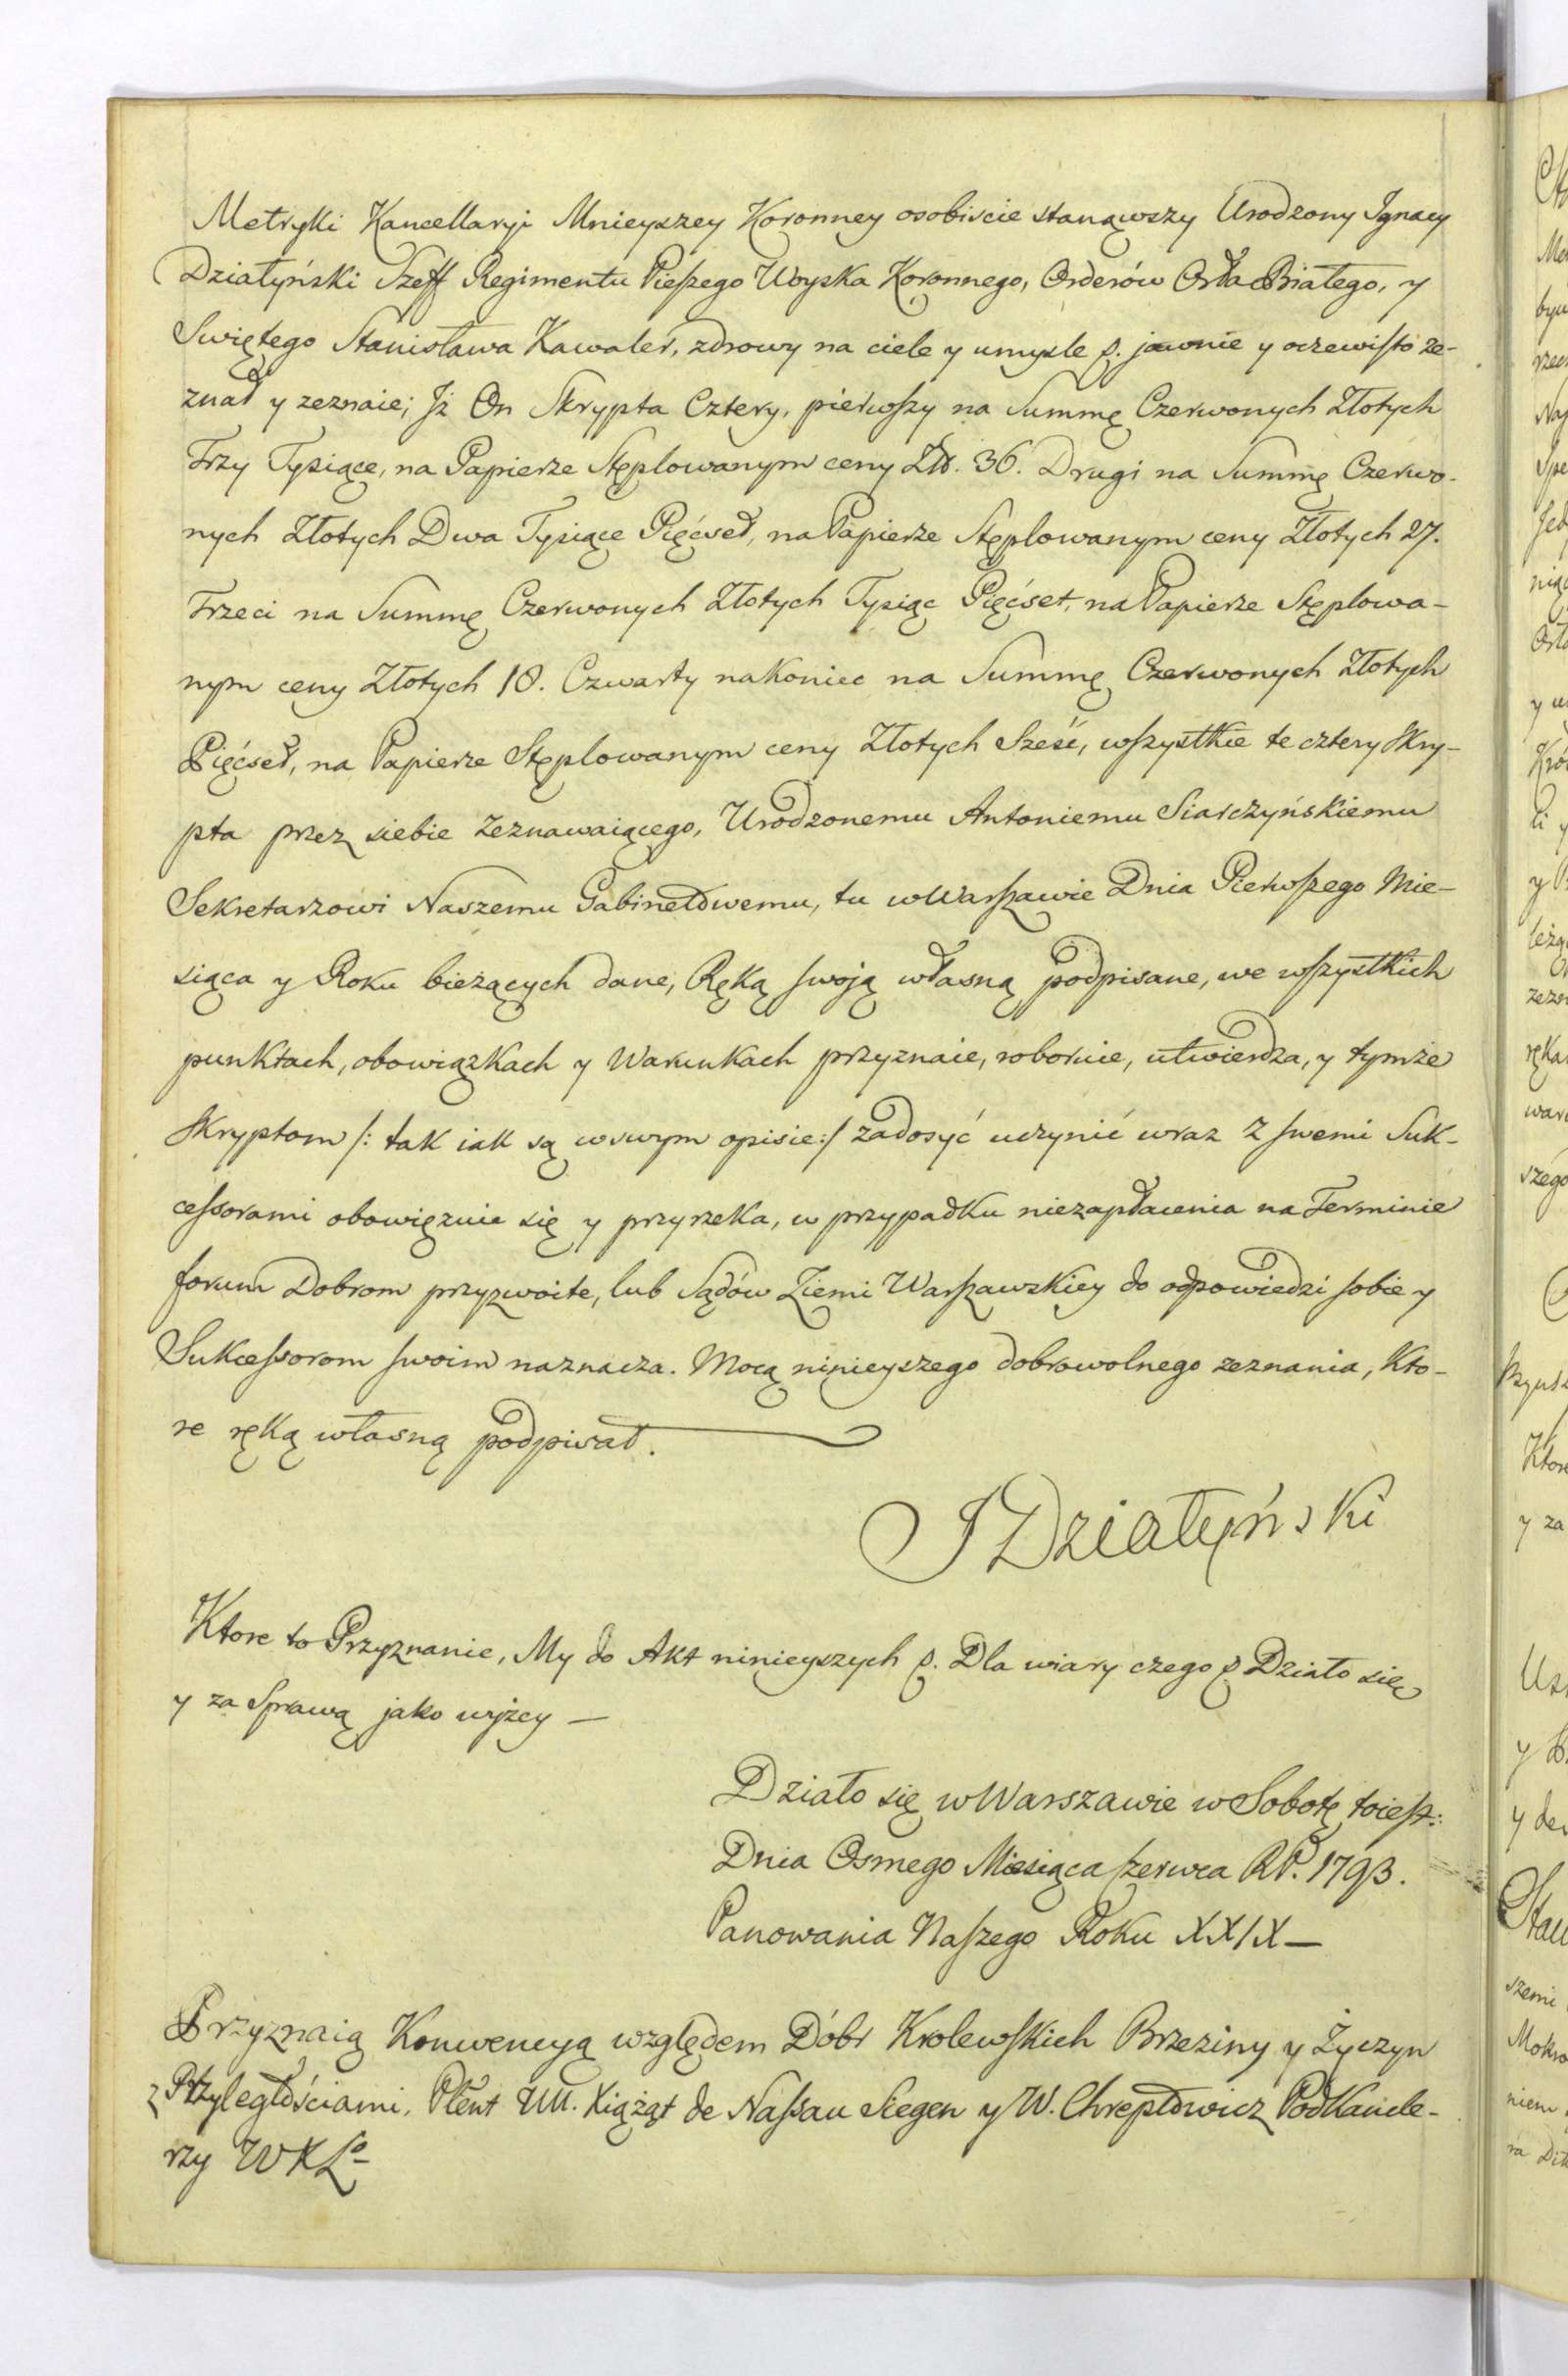 Metryki Kancellaryi Mnieyszey Koronney osobiscie stanąwszy Urodzony Ignacy
Działyński Szeff Regimentu Pieszego Woyska Koronnego, Orderów Orła Białego, y
Swiętego Stanisława Kawaler, zdrowy na ciele y umysle p. jawnie y oczewisto ze-
znał y zeznaie; Iż On Skrypta Cztery, pierwszy na Summę Czerwonych Złotych
Trzy Tysiące, na Papierze Stęplowanym ceny Zł. 36. Drugi na Summę Czerwo-
nych Złotych Dwa Tysiące Pięćset, na Papierze Stęplowanym ceny Złotych 27.
Trzeci na Summę Czerwonych Złotych Tysiąc Pięćset, na Papierze Stęplowa-
nym ceny Złotych 18. Czwarty nakoniec na Summę Czerwonych Złotych
Pięćset, na Papierze Stęplowanym ceny Złotych Sześć, wszystkie te cztery Skry-
pta przez siebie zeznawaiącego, Urodzonemu Antoniemu Siarczyńskiemu
Sekretarzowi Naszemu Gabinetowemu, tu w Warszawie Dnia Pierwszego Mie-
siąca y Roku bieżących dane, Ręką swoją własną podpisane, we wszystkich
punktach, obowiązkach y Warunkach przyznaie, roboruie, utwierdza, y tymże
Skryptom /: tak iak są w swym opisie :/ zadosyć uczynić wraz z swemi Suk-
cessorami obowięzuie się y przyrzeka, w przypadku niezapłacenia na Terminie
forum Dobrom przyzwoite, lub Sądów Ziemi Warszawskiey do odpowiedzi sobie y
Sukcessorom swoim naznacza. Mocą ninieyszego dobrowolnego zeznania, Kto-
re ręką własną podpisał.
I Działyński
Ktore to Przyznanie, My do Akt ninieyszych p. Dla wiary czego p Działo się
y za Sprawą jako wyżey —
Działo się w Warszawie w Sobotę toiest:
Dnia Osmego Miesiąca Czerwca RP. 1793.
Panowania Naszego Roku XXIX —
Przyznaią Konwencyą względem Dóbr Krolewskich Brzeziny y Życzyn
z Przyległościami, Plent UU. Xiążąt de Nassau Siegen y W. Chreptowicz Podkancle-
rzy WXLo